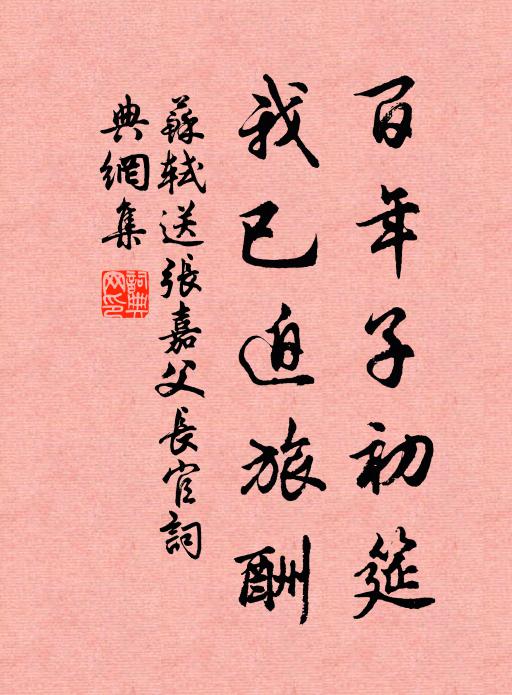 百年子初筵
我已迫旅酬
蘇軾送張嘉父長官詞
典網集
詞典網印